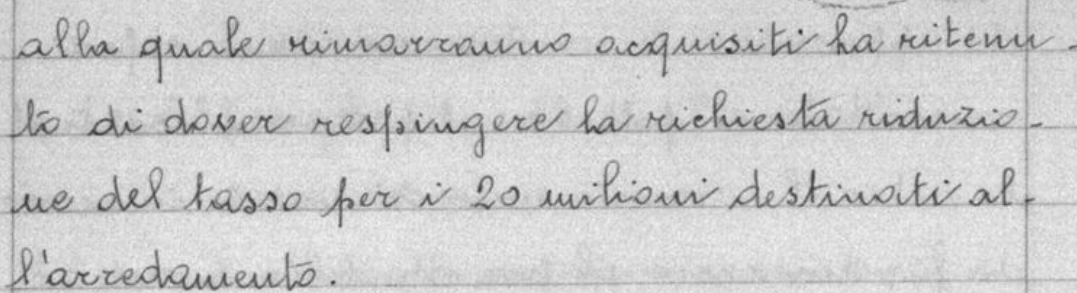 alla quale rimarranno acquisiti ha ritenu-
to di dover respingere la richiesta riduzio-
ne del tasso per i 20 milioni destinati al-
l'arredamento.